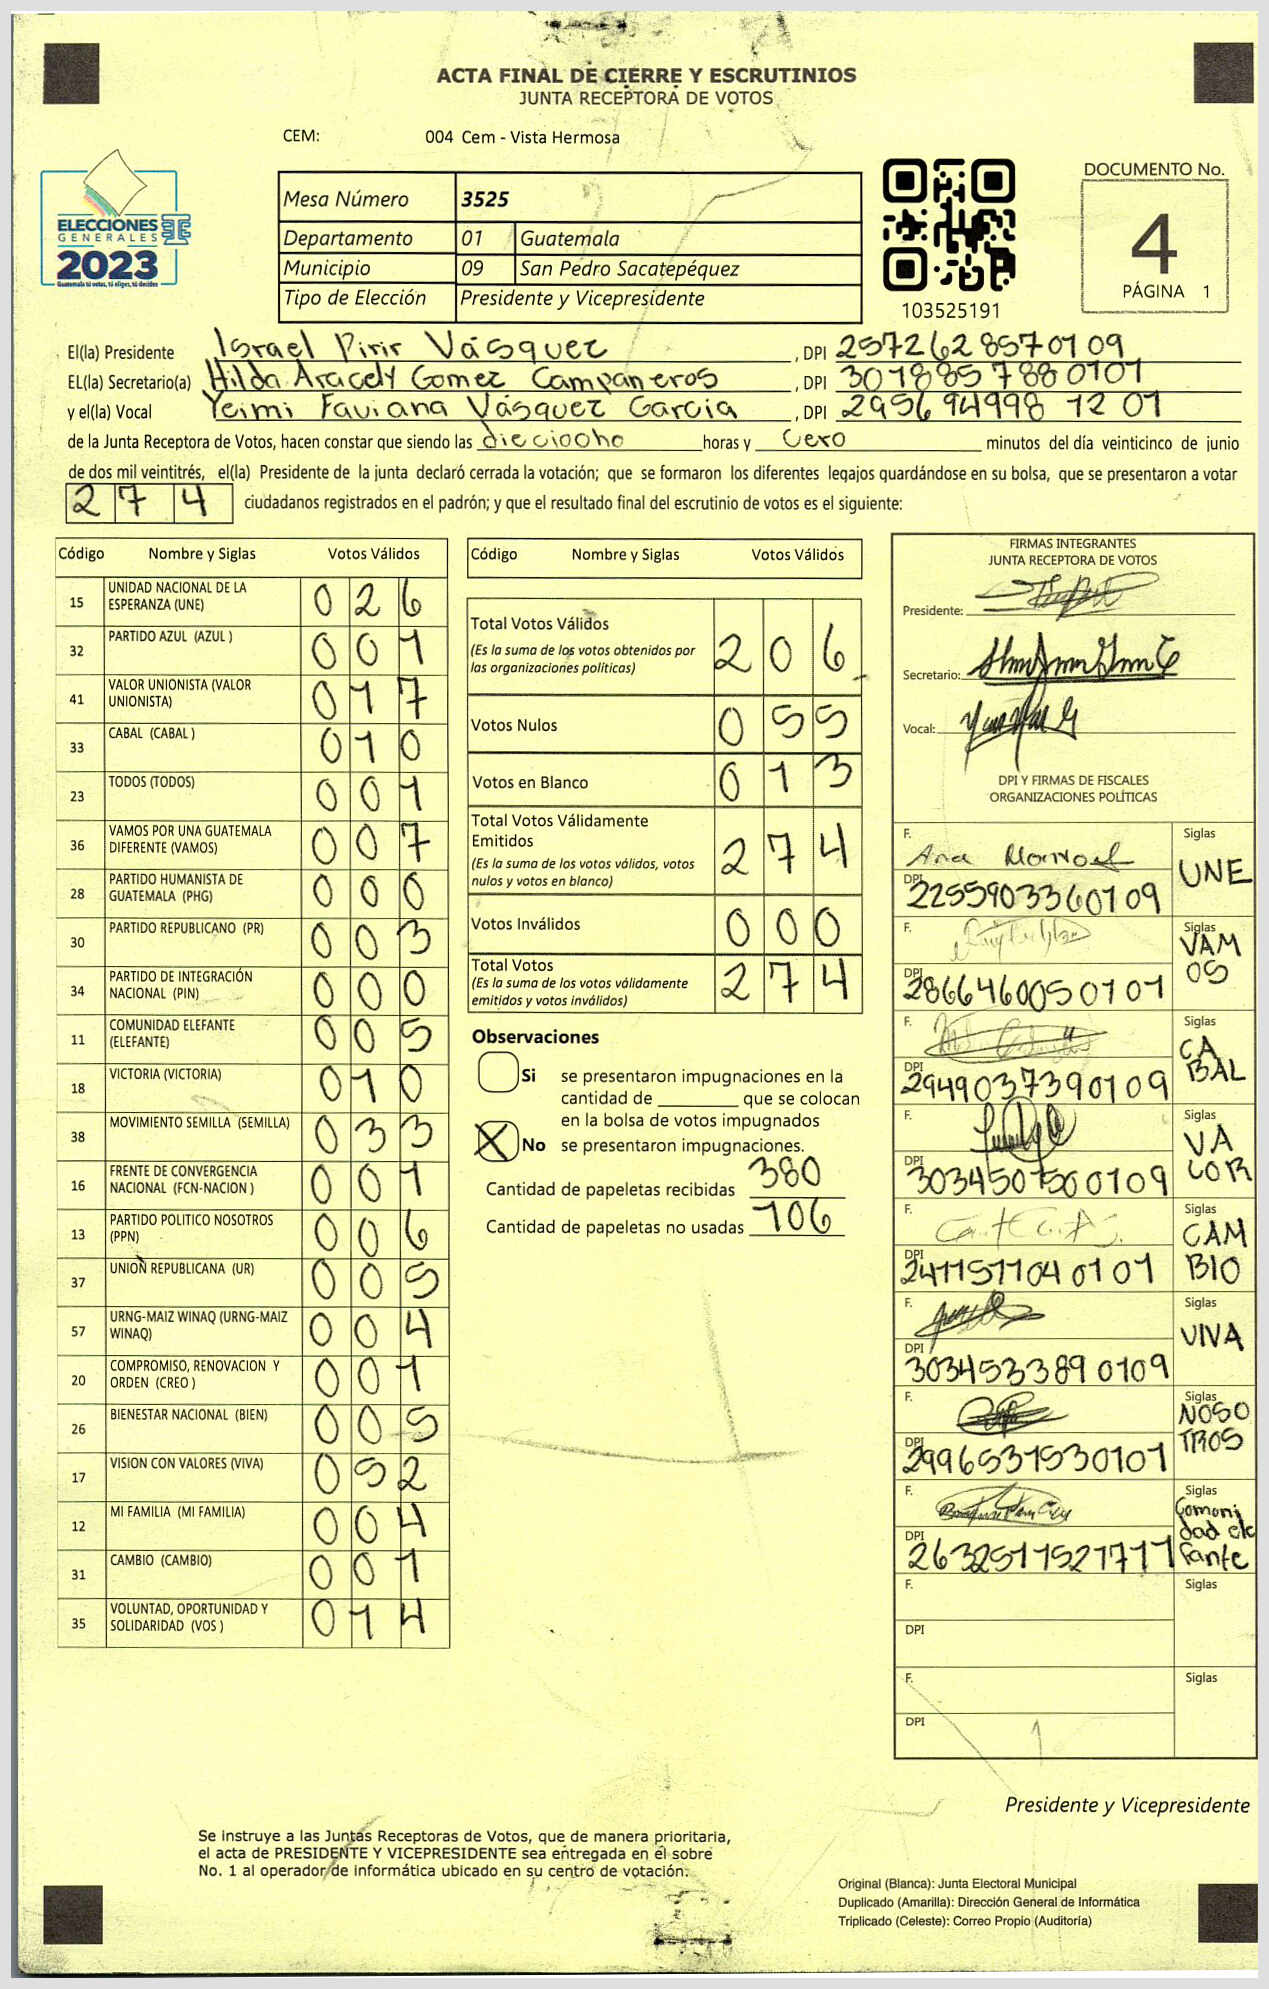 ACTA FINAL DE CIERRE Y ESCRUTINIOS
JUNTA RECEPTORA DE VOTOS
CEM: 004 Cem - Vista Hermosa
ELECCIONES
GENERALES
2023
Guatemala tú votas, tú eliges, tú decides
Mesa Número 3525
Departamento 01 Guatemala
Municipio 09 San Pedro Sacatepéquez
Tipo de Elección Presidente y Vicepresidente
103525191
DOCUMENTO No.
4
PÁGINA 1
El(la) Presidente Israel Pirir Vásquez, DPI 2572628570109
EL(la) Secretario(a) Hilda Aracely Gomez Campaneros, DPI 3018857880101
y el(la) Vocal Yeimi Faviana Vásquez Garcia, DPI 2956949981201
de la Junta Receptora de Votos, hacen constar que siendo las dieciocho horas y cero minutos del día veinticinco de junio
de dos mil veintitrés, el(la) Presidente de la junta declaró cerrada la votación; que se formaron los diferentes legajos quardándose en su bolsa, que se presentaron a votar
274 ciudadanos registrados en el padrón; y que el resultado final del escrutinio de votos es el siguiente:
Código Nombre y Siglas Votos Válidos
15 UNIDAD NACIONAL DE LA ESPERANZA (UNE) 026
32 PARTIDO AZUL (AZUL ) 001
41 VALOR UNIONISTA (VALOR UNIONISTA) 017
33 CABAL (CABAL ) 010
23 TODOS (TODOS) 001
36 VAMOS POR UNA GUATEMALA DIFERENTE (VAMOS) 007
28 PARTIDO HUMANISTA DE GUATEMALA (PHG) 000
30 PARTIDO REPUBLICANO (PR) 003
34 PARTIDO DE INTEGRACIÓN NACIONAL (PIN) 000
11 COMUNIDAD ELEFANTE (ELEFANTE) 005
18 VICTORIA (VICTORIA) 010
38 MOVIMIENTO SEMILLA (SEMILLA) 033
16 FRENTE DE CONVERGENCIA NACIONAL (FCN-NACION ) 001
13 PARTIDO POLITICO NOSOTROS (PPN) 006
37 UNION REPUBLICANA (UR) 005
57 URNG-MAIZ WINAQ (URNG-MAIZ WINAQ) 004
20 COMPROMISO, RENOVACION Y ORDEN (CREO ) 001
26 BIENESTAR NACIONAL (BIEN) 005
17 VISION CON VALORES (VIVA) 052
12 MI FAMILIA (MI FAMILIA) 004
31 CAMBIO (CAMBIO) 001
35 VOLUNTAD, OPORTUNIDAD Y SOLIDARIDAD (VOS ) 014
Código Nombre y Siglas Votos Válidos
Total Votos Válidos 206
(Es la suma de los votos obtenidos por
las organizaciones políticas)
Votos Nulos 055
Votos en Blanco 013
Total Votos Válidamente
Emitidos 274
(Es la suma de los votos válidos, votos
nulos y votos en blanco)
Votos Inválidos 000
Total Votos 274
(Es la suma de los votos válidamente
emitidos y votos inválidos)
Observaciones
Si se presentaron impugnaciones en la
cantidad de ________ que se colocan
en la bolsa de votos impugnados
X No se presentaron impugnaciones.
Cantidad de papeletas recibidas 380
Cantidad de papeletas no usadas 106
FIRMAS INTEGRANTES
JUNTA RECEPTORA DE VOTOS
Presidente:
Secretario:
Vocal:
DPI Y FIRMAS DE FISCALES
ORGANIZACIONES POLÍTICAS
F. Siglas UNE
DPI 2255903360109
F. Siglas VAMOS
DPI 2866460050101
F. Siglas CABAL
DPI 2949037390109
F. Siglas VALOR
DPI 3034507500109
F. Siglas CAMBIO
DPI 2411511040101
F. Siglas VIVA
DPI 3034533890109
F. Siglas NOSOTROS
DPI 2996531530101
F. Siglas Comonidad elefante
DPI 2632511521711
F. Siglas
DPI
F. Siglas
DPI
Presidente y Vicepresidente
Se instruye a las Juntas Receptoras de Votos, que de manera prioritaria,
el acta de PRESIDENTE Y VICEPRESIDENTE sea entregada en el sobre
No. 1 al operador de informática ubicado en su centro de votación.
Original (Blanca): Junta Electoral Municipal
Duplicado (Amarilla): Dirección General de Informática
Triplicado (Celeste): Correo Propio (Auditoría)